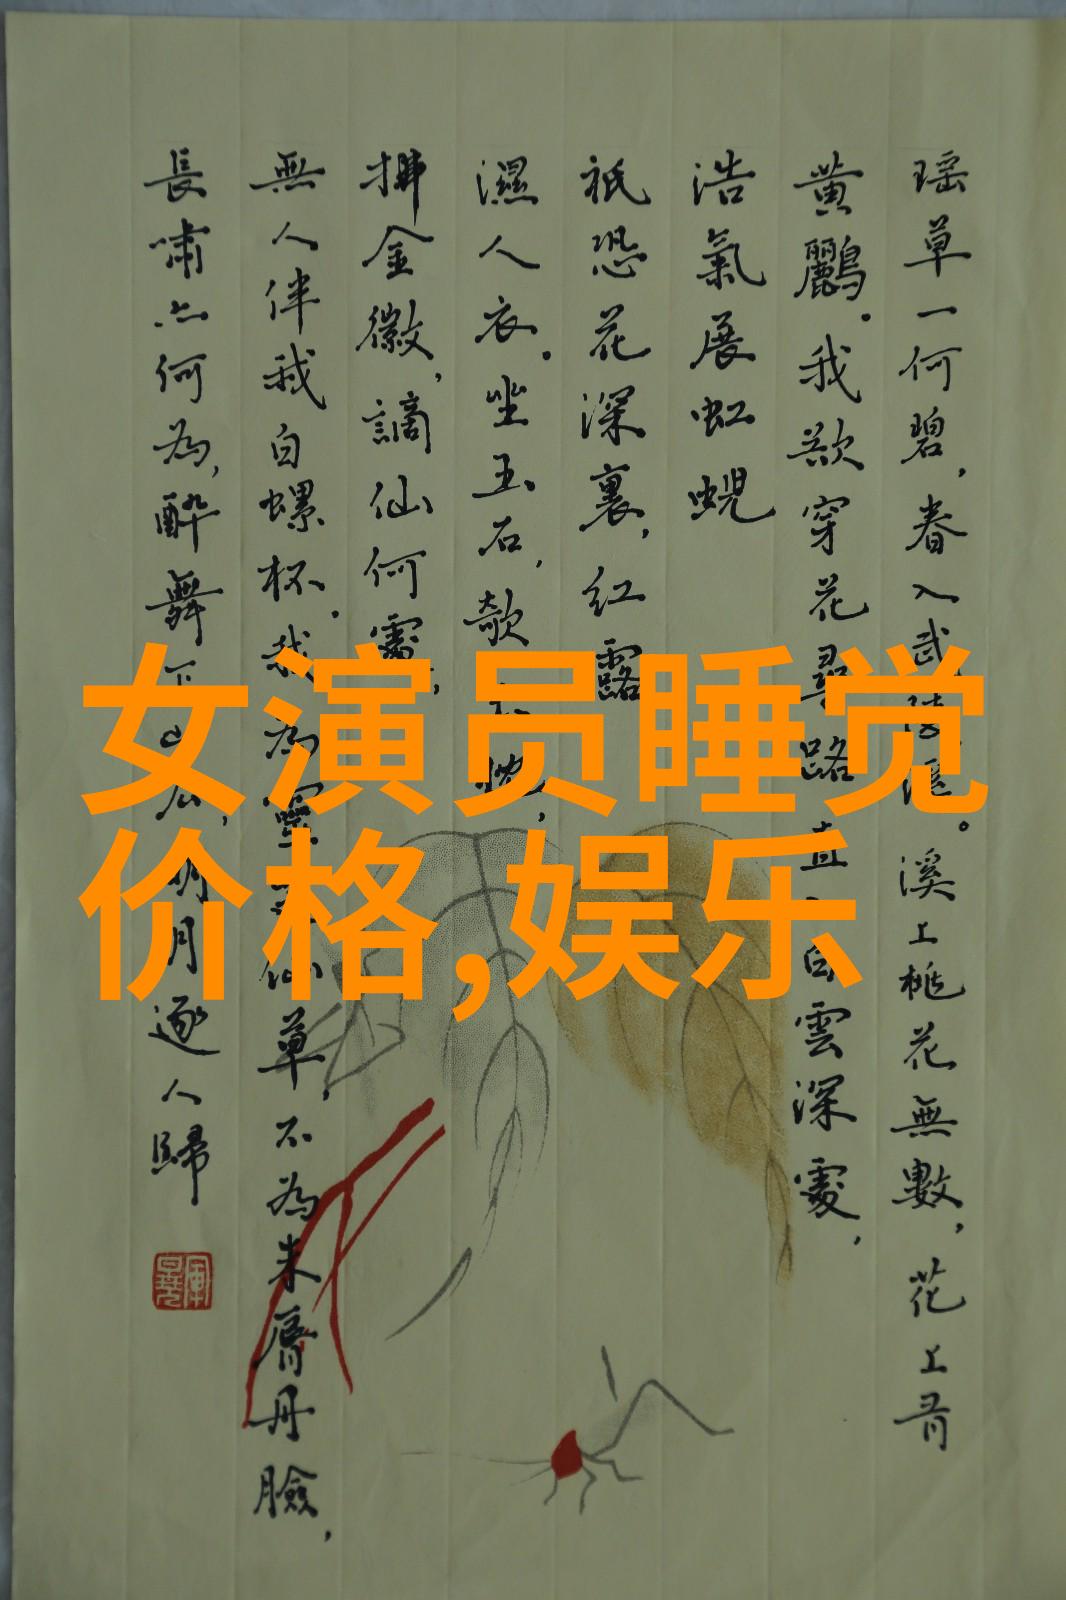 女演员睡觉
价格,娱乐
瑶草一何碧,春入武陵溪。溪上桃花無數,花上有
黄鸝。我欲穿花尋路直入白雲深處,
浩氣展虹蜺
祇恐花深裏,紅露
濕人衣。坐玉石,欹玉枕,
拂金徽,謫仙何處,
無人伴我白螺杯。我為靈芝仙草,不為朱脣丹臉,
長嘯亦何為,醉舞下山去,明月逐人歸